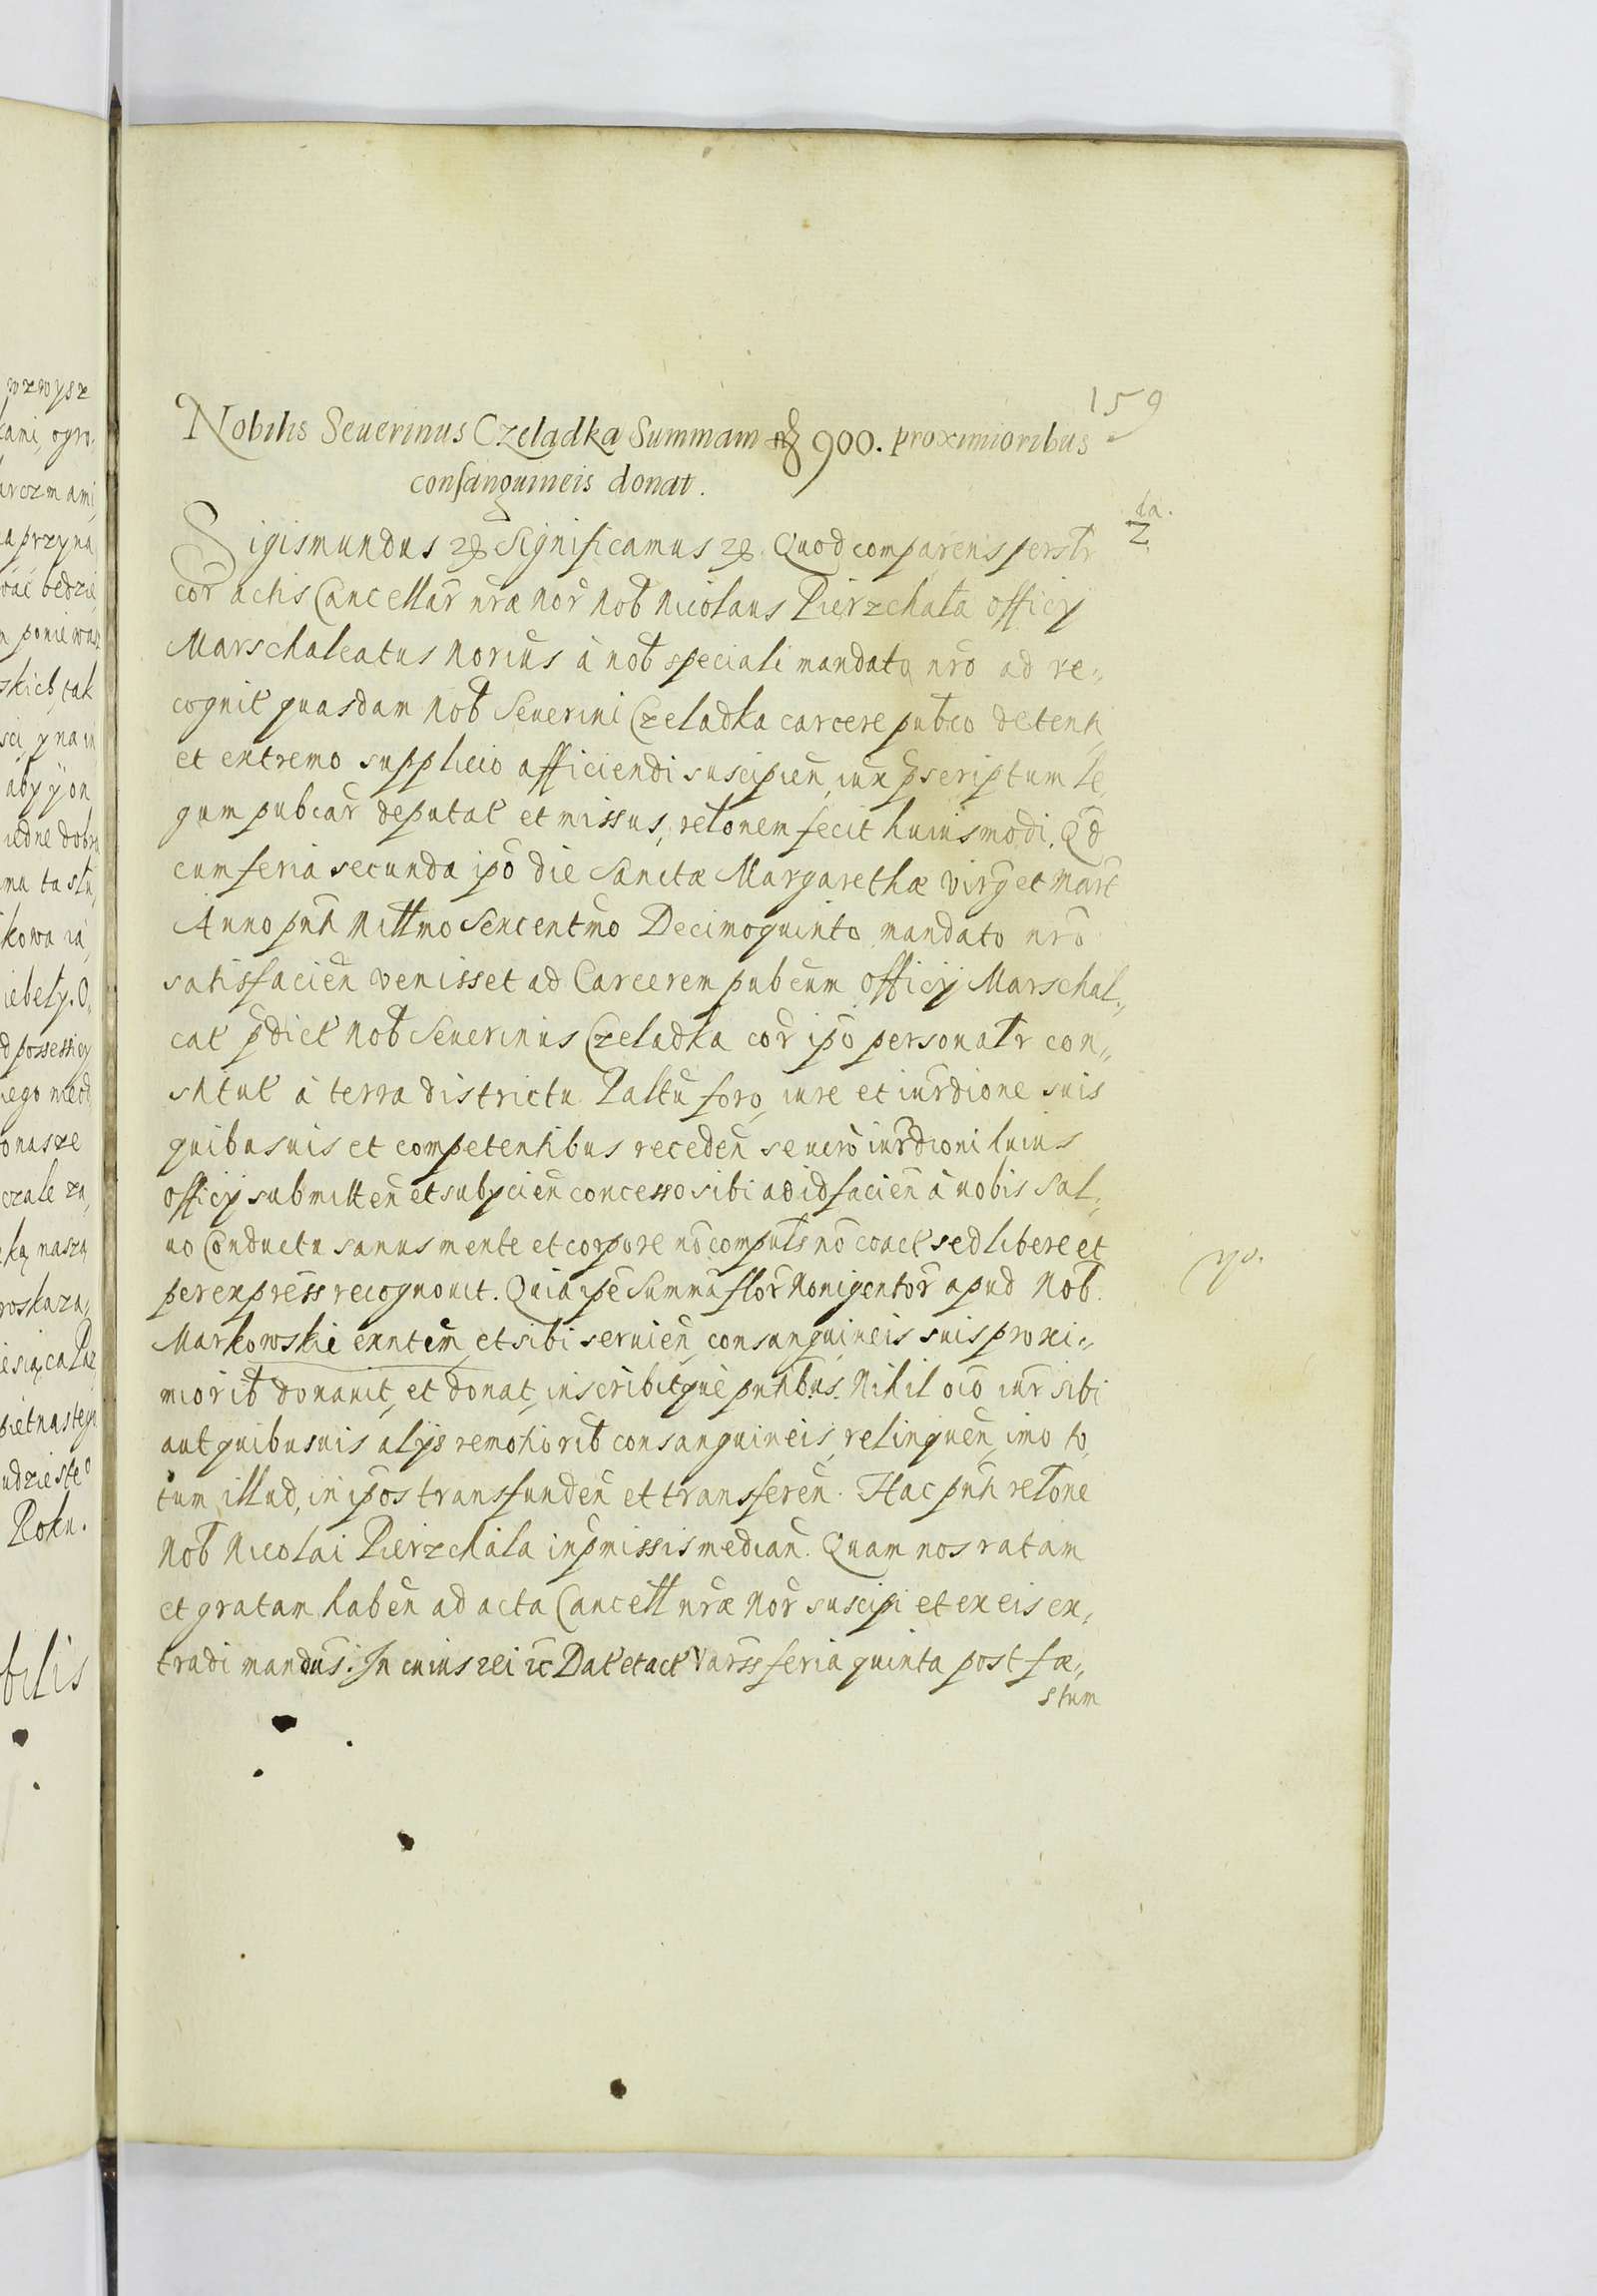 wzwysz
kami, ogro„
arczmami,
aprzyna„
wać będzie,
m poniewasz
skich, tak
sci, y na in
aby y on
iedne dobra
ma ta stu„
kowa ia„
iebety. O„
d possessiey
iego nied„
onasze
czale za„
ką naszą
roskaza„
iesiąca Paz
pietnastego
udzieste°
Roku.
bilis
159
Nobilis Seuerinus Czeladka Summam fl 900. proximioribus
consanguineis donat.
da.
2
Sigismundus &c. Significamus &c. Quod comparens perstr
cor̃ actis Cancellar̃ nr̃æ Mor̃ Nob̃ Nicolaus Pierzchała officy
Marschalcatus Norius à nob̃ speciali mandato nr̃o ad re„
cognit̃ quasdam Nob̃ Seuerini Czeladka carcere pubco detenti,
et extremo supplicio afficiendi suscipien̄, iux p̃scriptum le„
gum pubcar̃ deputat̃ et missus, relõnem fecit huiusmodi. Qd̃
cum feria secunda ip̃o die Sanctæ Margarethæ Virg̃ et Mart̃
Anno pñti Millmo Sexcentmõ Decimoquinto, mandato nr̃o
satisfacien̄ venisset ad Carcerem pubcum officy Marschal„
cat̃ p̃dict̃ Nob̃ Seuerinus Czeladka cor̃ ip̃o personaltr con„
stitut̃ à terra districtu Paltū foro, iure et iurd̃ione suis
quibusuis et competentibus receden̄ se uerò iurd̃ioni huius
officy submitten̄ et subycien̄ concesso sibi ad id facien̄ à nobis Sal„
uo Conductu sanus mente et corpore nõ compuls̃ nõ coact̃ sed libere et
per express̃ recognouit. Quia ip̃e Summã flor̃ Nonigentor̃ apud Nob̃.
Markowski exntem̃, et sibi seruien̄ consanguineis suis proxi„
miorib̃ donauit, et donat, inscribitque pñtibus. Nihil oĩo iur̃ sibi
aut quibusuis alys remotiorib̃ consanguineis, relinquen̄, imo to„
tum illud, in ip̃os transfunden̄ et transferen̄. Hac pñti relõne
Nob̃ Nicolai Pierzchala in p̃missis median̄. Quam nos ratam
et gratam haben̄ ad acta Cancell nr̃æ Mor̃ suscipi et ex eis ex„
tradi mandũs. In cuius rei &c Dat̃ et act̃ Vars̃s feria quinta post fæ„
stum